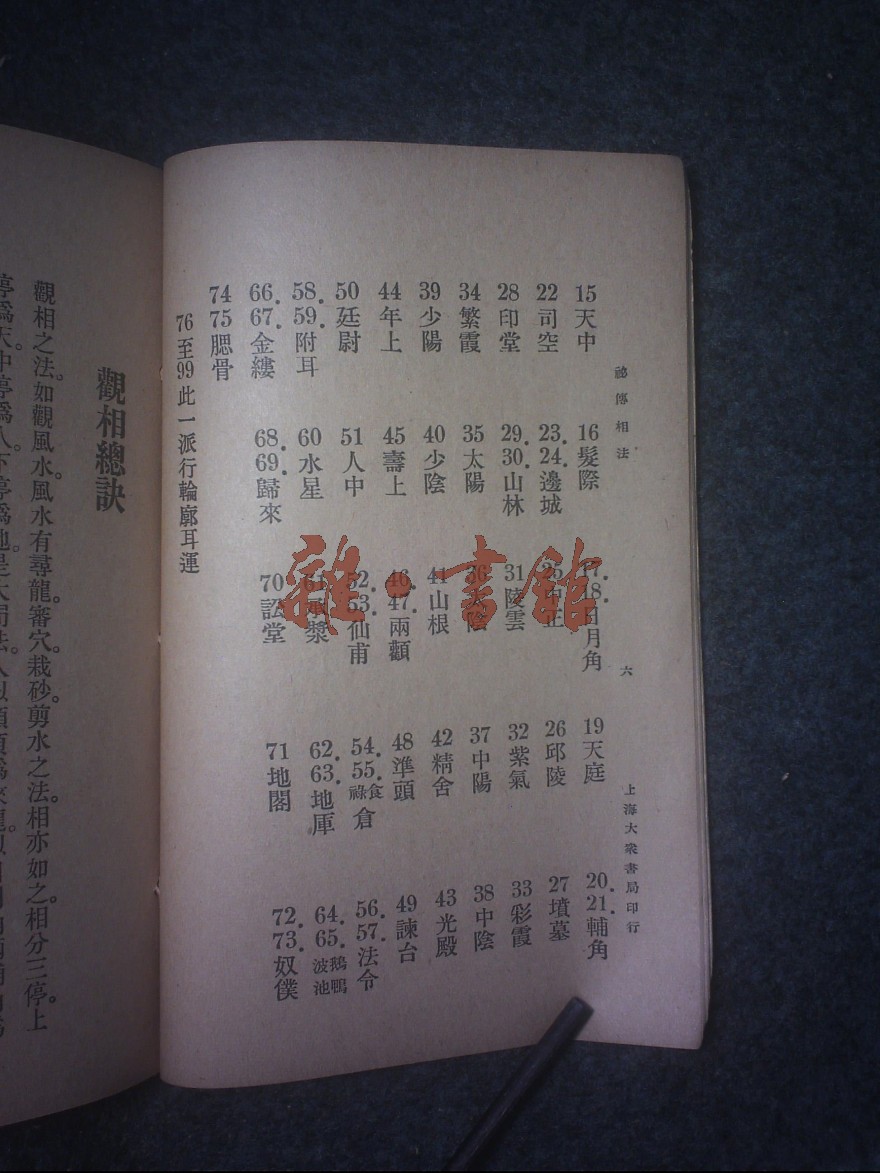 祕傳相法
六
上海大衆書局印行
15天中 16髮際 17.18.日月角 19天庭 20.21.輔角
22司空 23.24.邊城 25中正 26邱陵 27墳墓
28印堂 29.30.山林 31陵雲 32紫氣 33彩霞
34繁霞 35太陽 36太陰 37中陽 38中陰
39少陽 40少陰 41山根 42精舍 43光殿
44年上 45壽上 46.47.兩顴 48準頭 49諫台
50廷尉 51人中 52.53.仙甫 54.55.食祿倉 56.57.法令
58.59.附耳 60水星 61承漿 62.63.地庫 64.65.鵝鴨波池
66.67.金縷 68.69.歸來 70訟堂 71地閣 72.73.奴僕
74 75腮骨
76至99此一派行輪廓耳運
觀相總訣
觀相之法。如觀風水。風水有尋龍審穴。栽砂剪水之法。相亦如之。相分三停。上
雜·書館